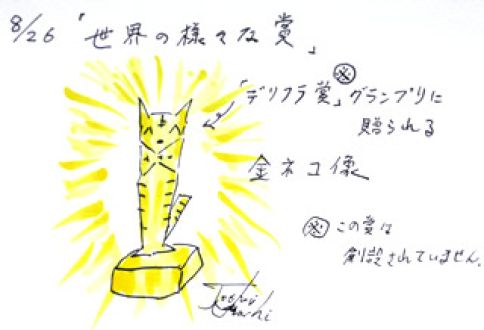 8/26「世界の様々な賞」
「デリフラ賞」※グランプリに
贈られる
金ネコ像
※この賞は
創設されていません。